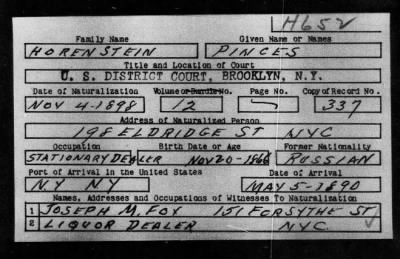 H652
Family Name Given Name or Names
HORENSTEIN PINCES
Title and Location of Court
U. S. DISTRICT COURT, BROOKLYN, N.Y.
Date of Naturalization Volume or Bundle No. Page No. Copy of Record No.
NOV 4-1898 12 — 337
Address of Naturalized Person
198 ELDRIDGE ST NYC
Occupation Birth Date or Age Former Nationality
STATIONARY DEALER NOV 20-1866 RUSSIAN
Port of Arrival in the United States Date of Arrival
N.Y. NY MAY 5-1890
Names, Addresses and Occupations of Witnesses To Naturalization
1 JOSEPH M. FOX 151 FORSYTHE ST
2 LIQUOR DEALER NYC